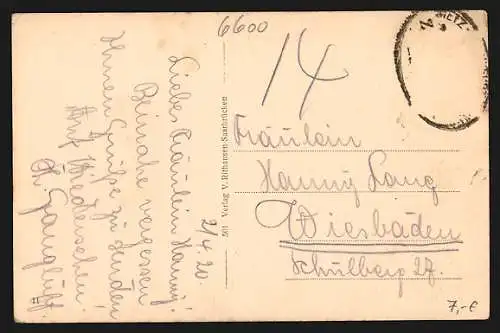 6600
14
21/4.20.
Liebes Fräulein Hanny!
Beinahe vergessen
Ihnen Grüße zu senden
Auf Wiedersehen!
H. Gangluff.
501 Verlag V. Rithansen-Saarbrücken
METZ
2
Fräulein
Hanny Lang
Wiesbaden
Schulberg 27.
7,-€